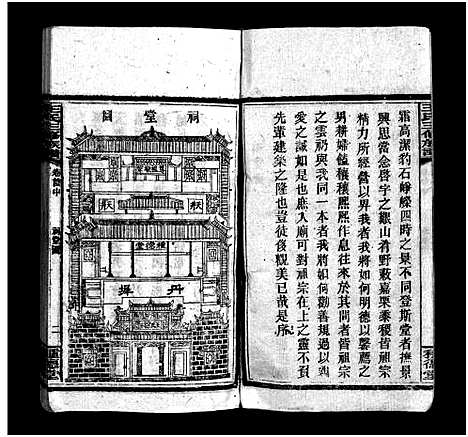 霜高潔豹石崢嶸四時之景不同登斯堂者撫景
興思當念啓宇之艱山肴野蔌嘉栗黍稷皆祖宗
精力所經營以畀我者我將如何明德以馨薦之
男耕婦饁穰穰熙熙作息往來於其間者皆祖宗
之雲礽與我同一本者我將如何勸善規過以相
愛之誠如是也庶入廟可對祖宗在上之靈不負
先輩建築之隆也豈徒後觀美已哉是序
祠堂圖
丹墀
卷首中
祠堂圖
二